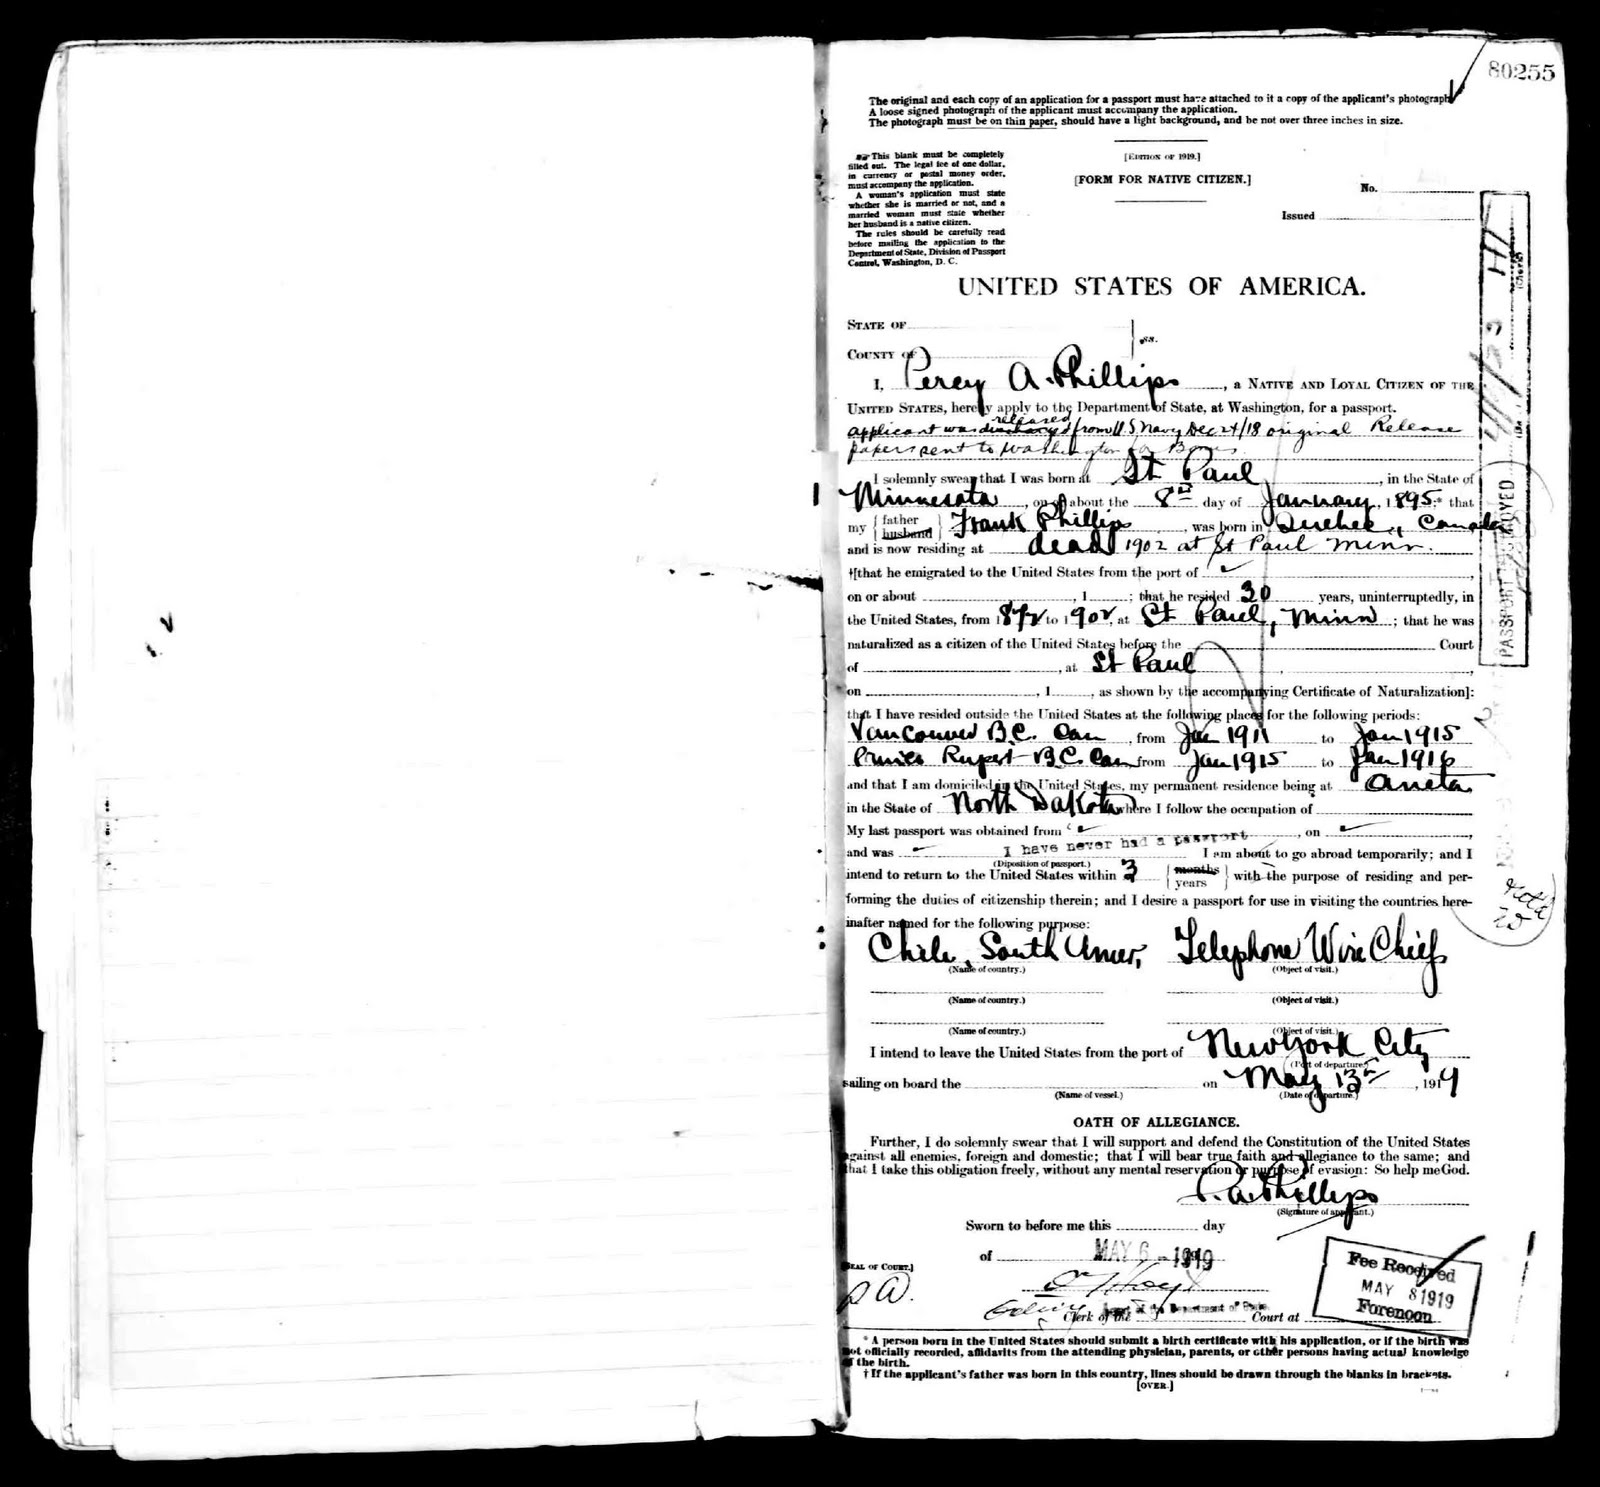 80255
The original and each copy of an application for a passport must have attached to it a copy of the applicant's photograph.
A loose signed photograph of the applicant must accompany the application.
The photograph must be on thin paper, should have a light background, and be not over three inches in size.
This blank must be completely
filled out. The legal fee of one dollar,
in currency or postal money order,
must accompany the application.
A woman's application must state
whether she is married or not, and a
married woman must state whether
her husband is a native citizen.
The rules should be carefully read
before mailing the application to the
Department of State, Division of Passport
Control, Washington, D. C.
[EDITION OF 1919.]
[FORM FOR NATIVE CITIZEN.]
No.
Issued
UNITED STATES OF AMERICA.
STATE OF
ss.
COUNTY OF
I, Percy A. Phillips, a NATIVE AND LOYAL CITIZEN OF THE
UNITED STATES, hereby apply to the Department of State, at Washington, for a passport.
released
applicant was discharged from U.S. Navy Dec 24/18 original Release
papers sent to Washington for Bonus.
I solemnly swear that I was born at St Paul, in the State of
Minnesota, on or about the 8th day of January, 1895,* that
my {father husband} Frank Phillips, was born in Quebec, Canada
and is now residing at dead 1902 at St Paul Minn.
†[that he emigrated to the United States from the port of ,
on or about , 1 ; that he resided 30 years, uninterruptedly, in
the United States, from 1872 to 1902, at St Paul, Minn ; that he was
naturalized as a citizen of the United States before the Court
of , at St Paul ,
on , 1 , as shown by the accompanying Certificate of Naturalization]:
that I have resided outside the United States at the following places for the following periods:
Vancouver B.C. Can, from Jan 1911 to Jan 1915
Prince Rupert B.C. Can from Jan 1915 to Jan 1916
and that I am domiciled in the United States, my permanent residence being at Aneta
in the State of North Dakota where I follow the occupation of
My last passport was obtained from , on ,
and was I have never had a passport I am about to go abroad temporarily; and I
(Diposition of passport.)
intend to return to the United States within 3 {months years} with the purpose of residing and per-
forming the duties of citizenship therein; and I desire a passport for use in visiting the countries here-
inafter named for the following purpose:
Chile, South Amer, Telephone Wire Chief
(Name of country.) (Object of visit.)
(Name of country.) (Object of visit.)
(Name of country.) (Object of visit.)
I intend to leave the United States from the port of New York City
(Port of departure.)
sailing on board the on May 13th, 1919
(Name of vessel.) (Date of departure.)
OATH OF ALLEGIANCE.
Further, I do solemnly swear that I will support and defend the Constitution of the United States
against all enemies, foreign and domestic; that I will bear true faith and allegiance to the same; and
that I take this obligation freely, without any mental reservation or purpose of evasion: So help me God.
P. A. Phillips
(Signature of applicant.)
Sworn to before me this day
of MAY 6 - 1919
[SEAL OF COURT.]
of the Department of State
Clerk of the Court at
Fee Received
MAY 8 1919
Forenoon
* A person born in the United States should submit a birth certificate with his application, or if the birth was
not officially recorded, affidavits from the attending physician, parents, or other persons having actual knowledge
of the birth.
† If the applicant's father was born in this country, lines should be drawn through the blanks in brackets.
[OVER.]
PASSPORT DESTROYED